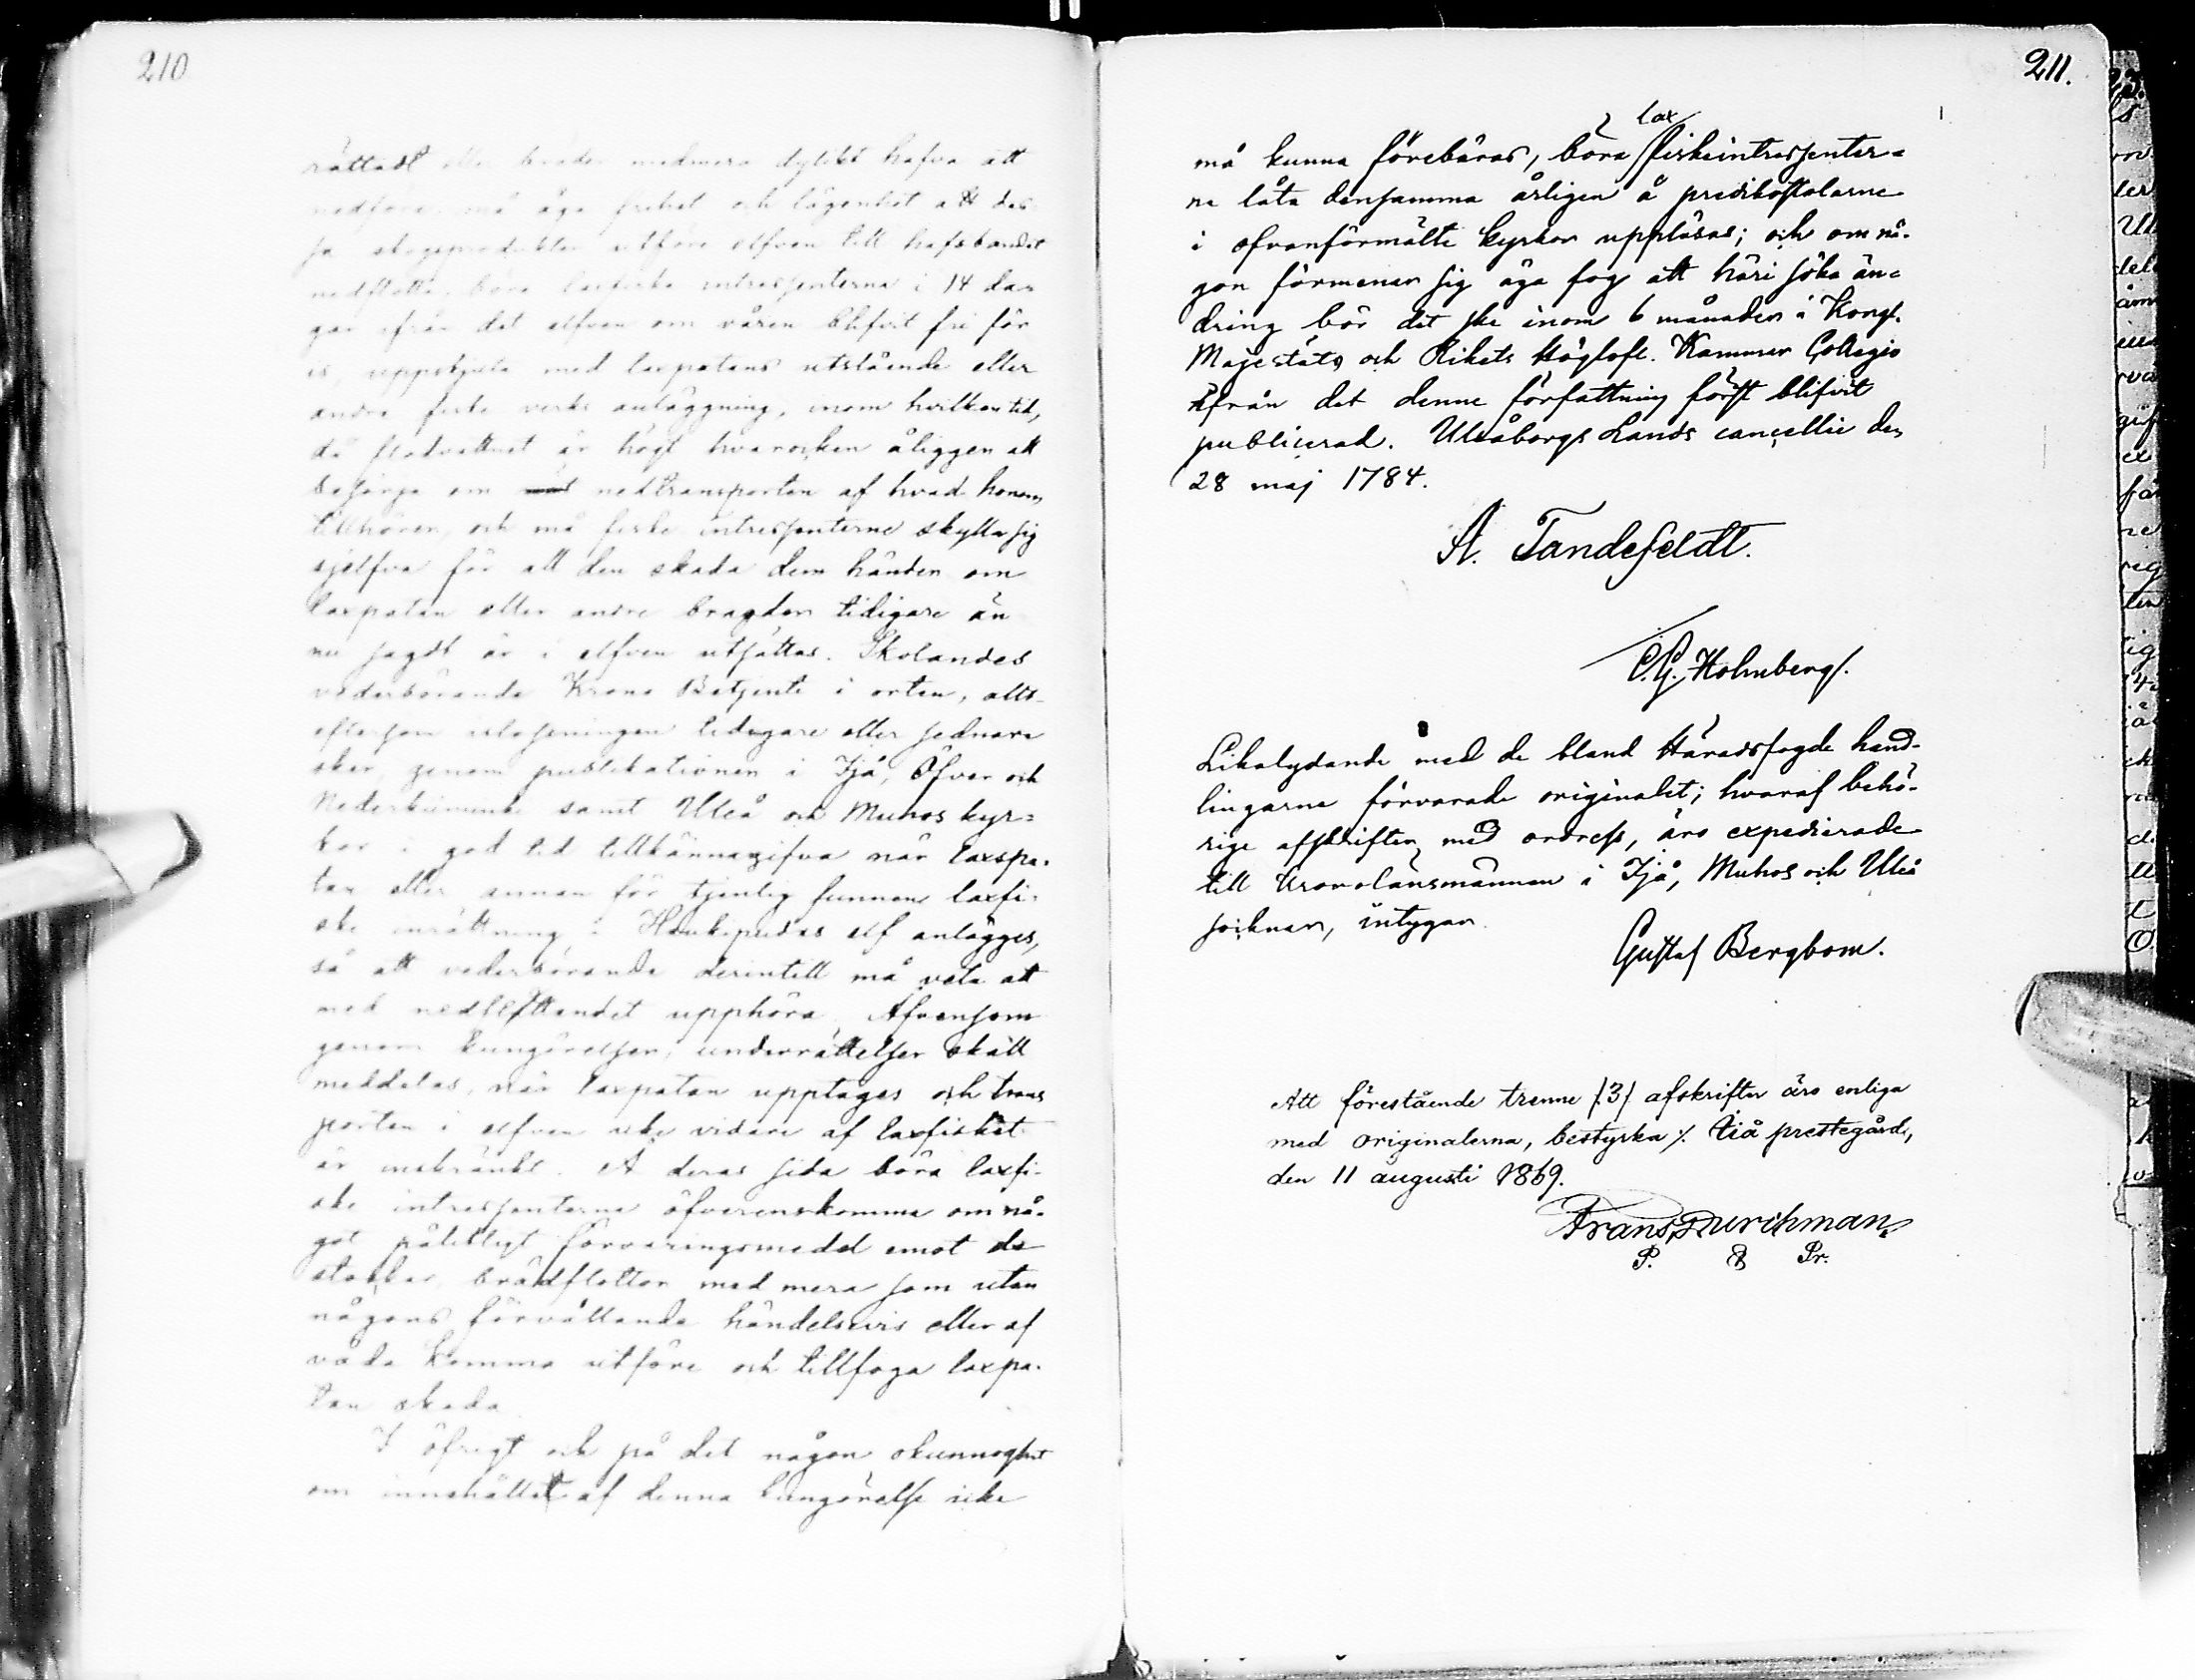 210
rättadt eller bräder medmera dylikt hafva att
nedföra må äga frihet och lägenhet att des-
sa skogsprodukter utföre elfven till hafsbandet
nedflotta, böra laxfiske intressenterna i 14 dar
gar ifrån det elfven om våren blifvit fri för
is, uppskjuta med laxpatans utslående eller
andra fiske verks anläggning, inom hvilken tid,
då flodvattnet är högt hvarochen åligger att
besörja om nedtransporten af hvad honom
tillhörer, och må fiske intressenterne skylla sig
sjelfva för all den skada dem händer om
laxpatan eller andre bragder tidigare än
nu sagdt är i elfven utsättas. Skolandes
vederbörande Krono Betjente i orten, allt-
eftersom islossningen tidigare eller sednare
sker, genom publikationen i Ijå, Öfver och
Nederkiminki samt Uleå och Muhos kyr=
kor i god tid tillkännagifva när laxspa-
tan eller annan för tjenlig funnen laxfi-
ske inrättning i Haukipudas elf anlägges,
så att vederbörande derintill må veta att
med nedflottandet upphöra, Äfvensom
genom kungörelser, underrättelser skall
meddelas, när laxpatan upptages och trans
porten i elfven icke vidare af laxfisket
är inskränkt. Å deras sida böra laxfi-
ske intressenterna öfverenskomma om nå-
got påliteligt förvaringsmedel emot de
stockar, brädflottor med mera som utan
någons förvållande händelsevis eller af
våda komma utföre och tillfoga laxpa-
tan skada.
I öfrigt och på det någon okunnoghet
om innehållet af denna kungörelse icke
211.
lax
må kunna förebäras, böra fiskeintressenter=
ne låta densamma årligen å predikostolarne
i ofvanförmälte kyrkor uppläsas; och om nå-
gon förmenar sig äga fog att häri söka än=
dring bör det ske inom 6 månader i Kongl.
Majestäts och Rikets Höglofl. Kammar Collegio
ifrån det denne författning först blifvit
publicerad. Uleåborgs Lands cancellie den
28 maj 1784.
A. Tandefeldt.
C.G. Holmberg.
Likalydande med de bland Häradsfogde hand-
lingarne förvarade originalet; hvaraf behö-
rige affskrifter med ordress, äro expedierade
till Kronolänsmännen i Ijå, Muhos och Uleå
socknar, intygar
Gustaf Bergbom.
Att förestående trenne /:3/ afskrifter äro enliga
med originalerna, bestyrka ·/. Iiå prestegård,
den 11 augusti 1869.
Frans Durchman
P. & Pr.